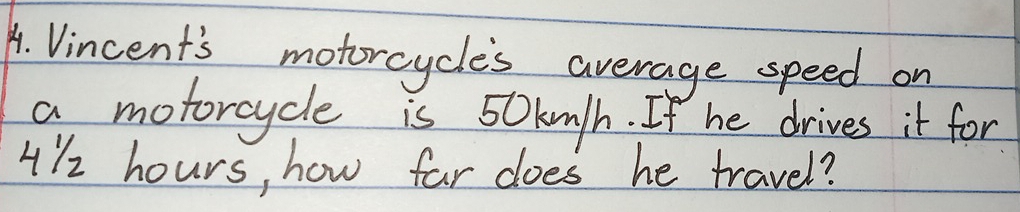 4. Vincent's motorcycle's average speed on
a motorcycle is 50km/h. If he drives it for
4½ hours, how far does he travel?